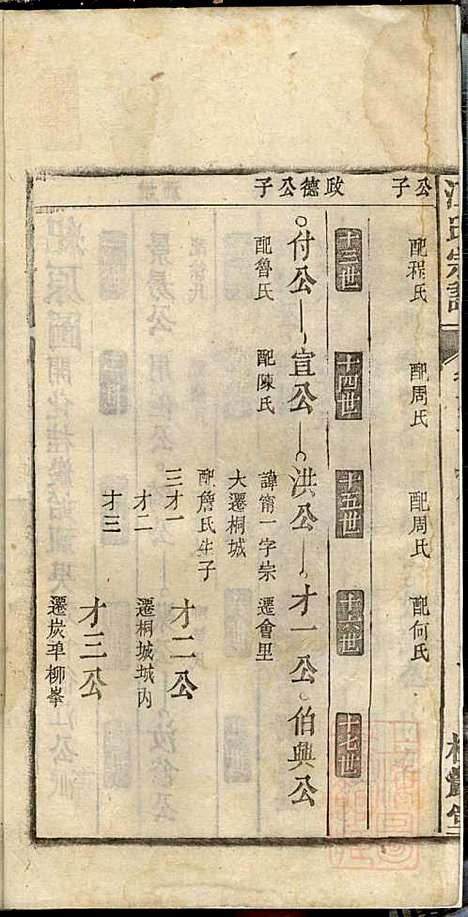 江氏宗譜
公子
配程氏
配周氏
配周氏
配何氏
十三世
十四世
十五世
十六世
十七世
政德公子
付公
宣公
洪公
才一公
伯興公
配魯氏
配陳氏
諱甯一字宗
大遷桐城
配詹氏生子
三才一
才二
才三
遷會里
才二公
遷桐城城內
才三公